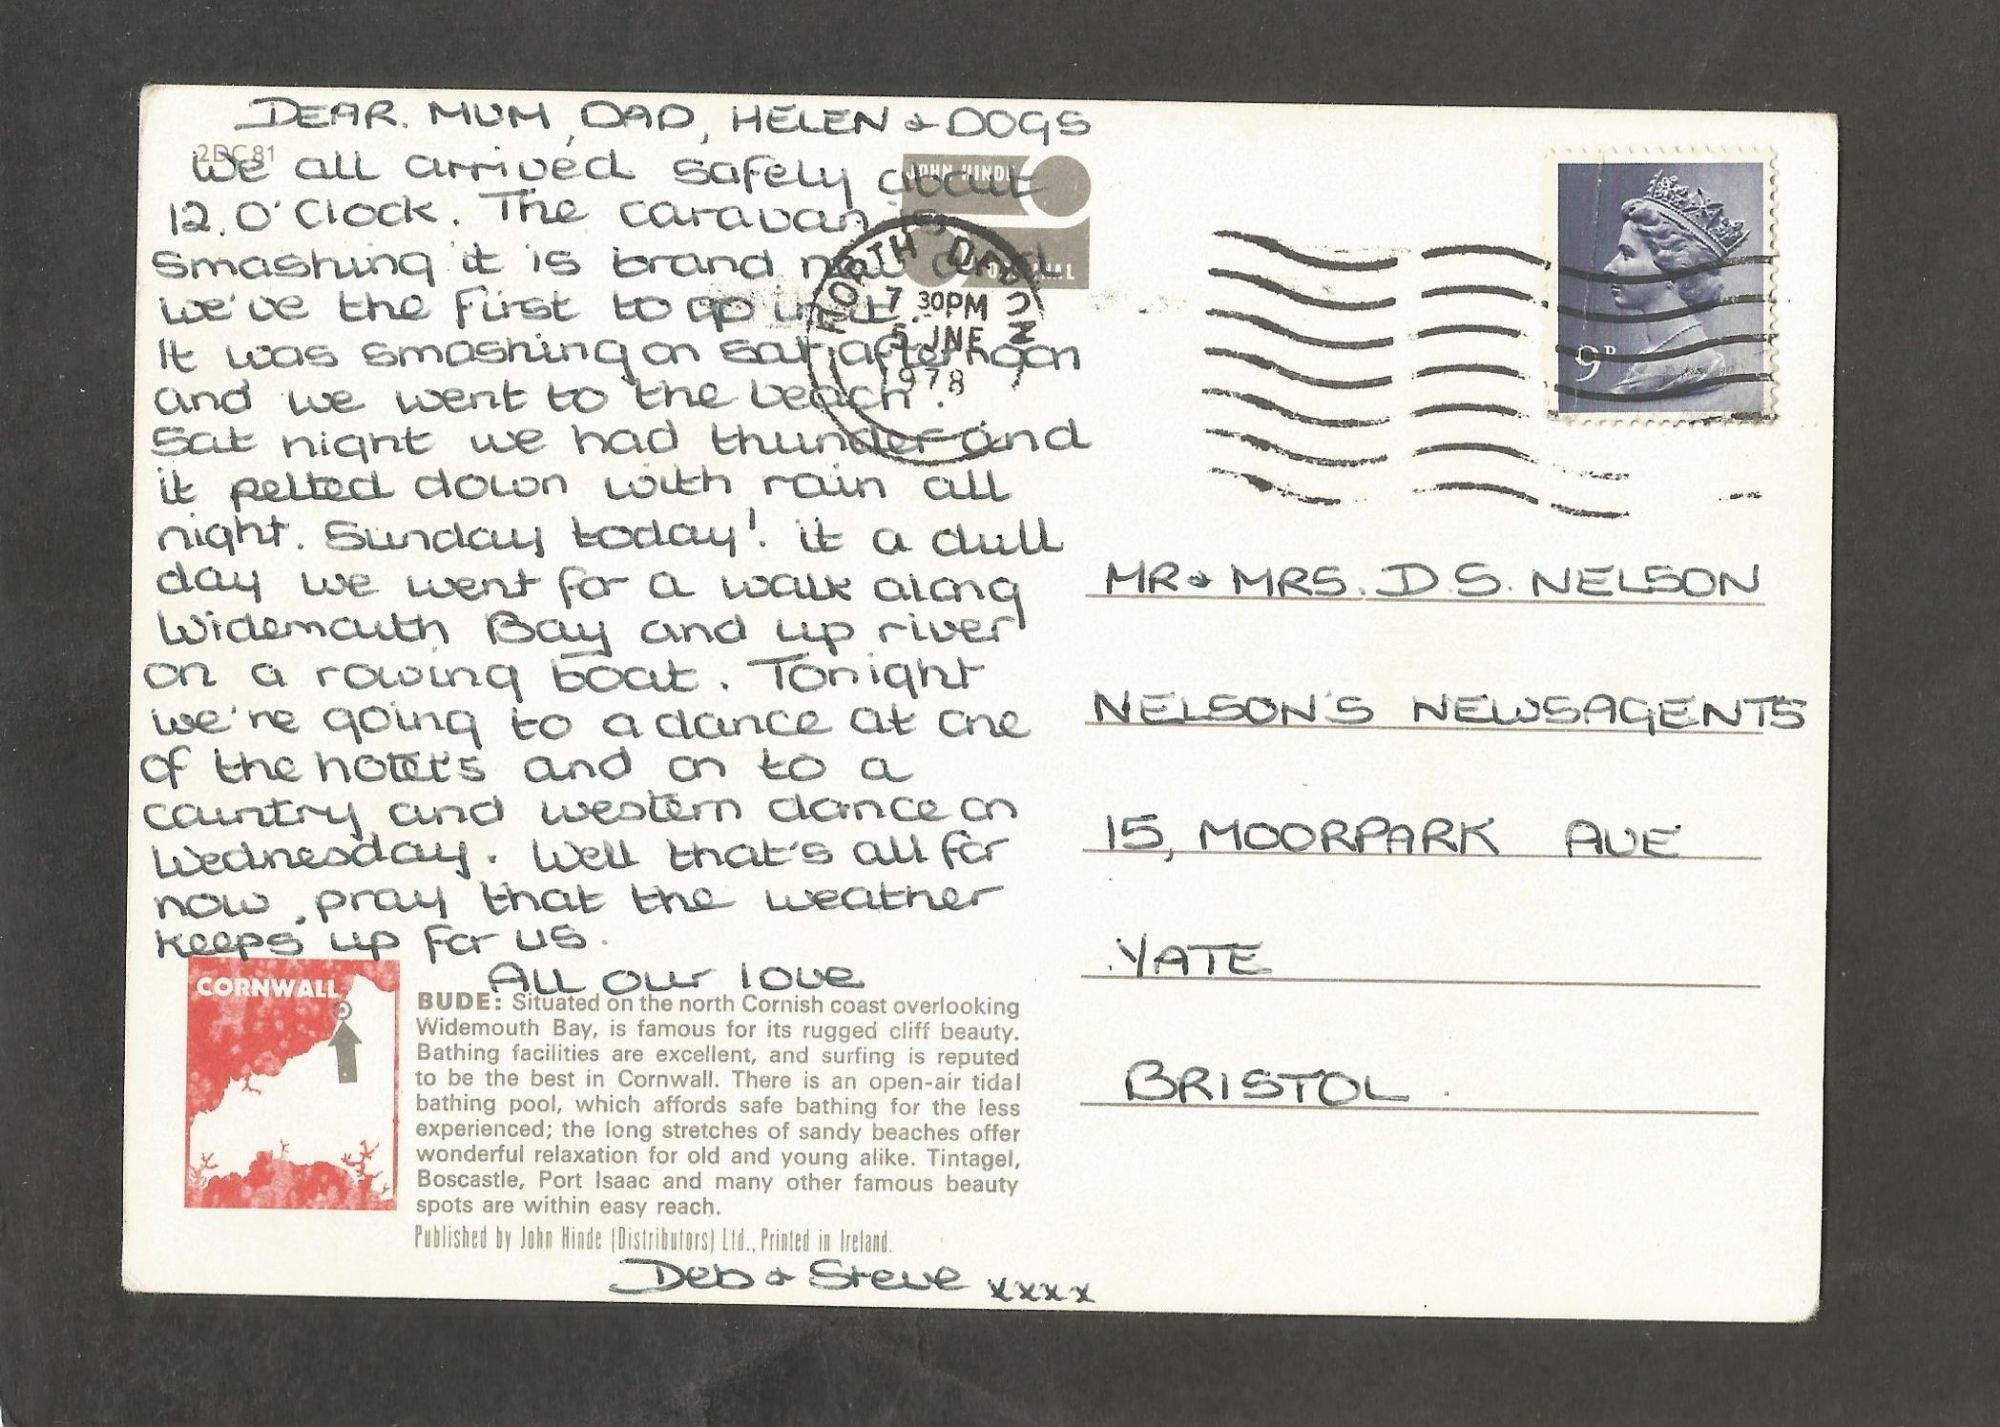 DEAR. MUM, DAD, HELEN & DOGS
2DC81
We all arrived safely about
12.O'Clock. The caravan is
smashing it is brand new and
we've the first to go in it.
It was smashing on sat afternoon
and we went to the beach.
Sat night we had thunder and
it pelted down with rain all
night. Sunday today! it a dull
day we went for a walk along
Widemouth Bay and up river
on a rowing boat. Tonight
we're going to a dance at one
of the hotel's and on to a
country and western dance on
Wednesday. Well that's all for
now, pray that the weather
keeps up for us.
All our love
Deb & Steve xxxx
JOHN HINDE
ORIGINAL
NORTH DEVON
7 30PM
5 JNE
1978
9P
MR & MRS. D.S. NELSON
NELSON'S NEWSAGENTS
15, MOORPARK AVE
YATE
BRISTOL.
CORNWALL
BUDE: Situated on the north Cornish coast overlooking
Widemouth Bay, is famous for its rugged cliff beauty.
Bathing facilities are excellent, and surfing is reputed
to be the best in Cornwall. There is an open-air tidal
bathing pool, which affords safe bathing for the less
experienced; the long stretches of sandy beaches offer
wonderful relaxation for old and young alike. Tintagel,
Boscastle, Port Isaac and many other famous beauty
spots are within easy reach.
Published by John Hinde (Distributors) Ltd., Printed in Ireland.